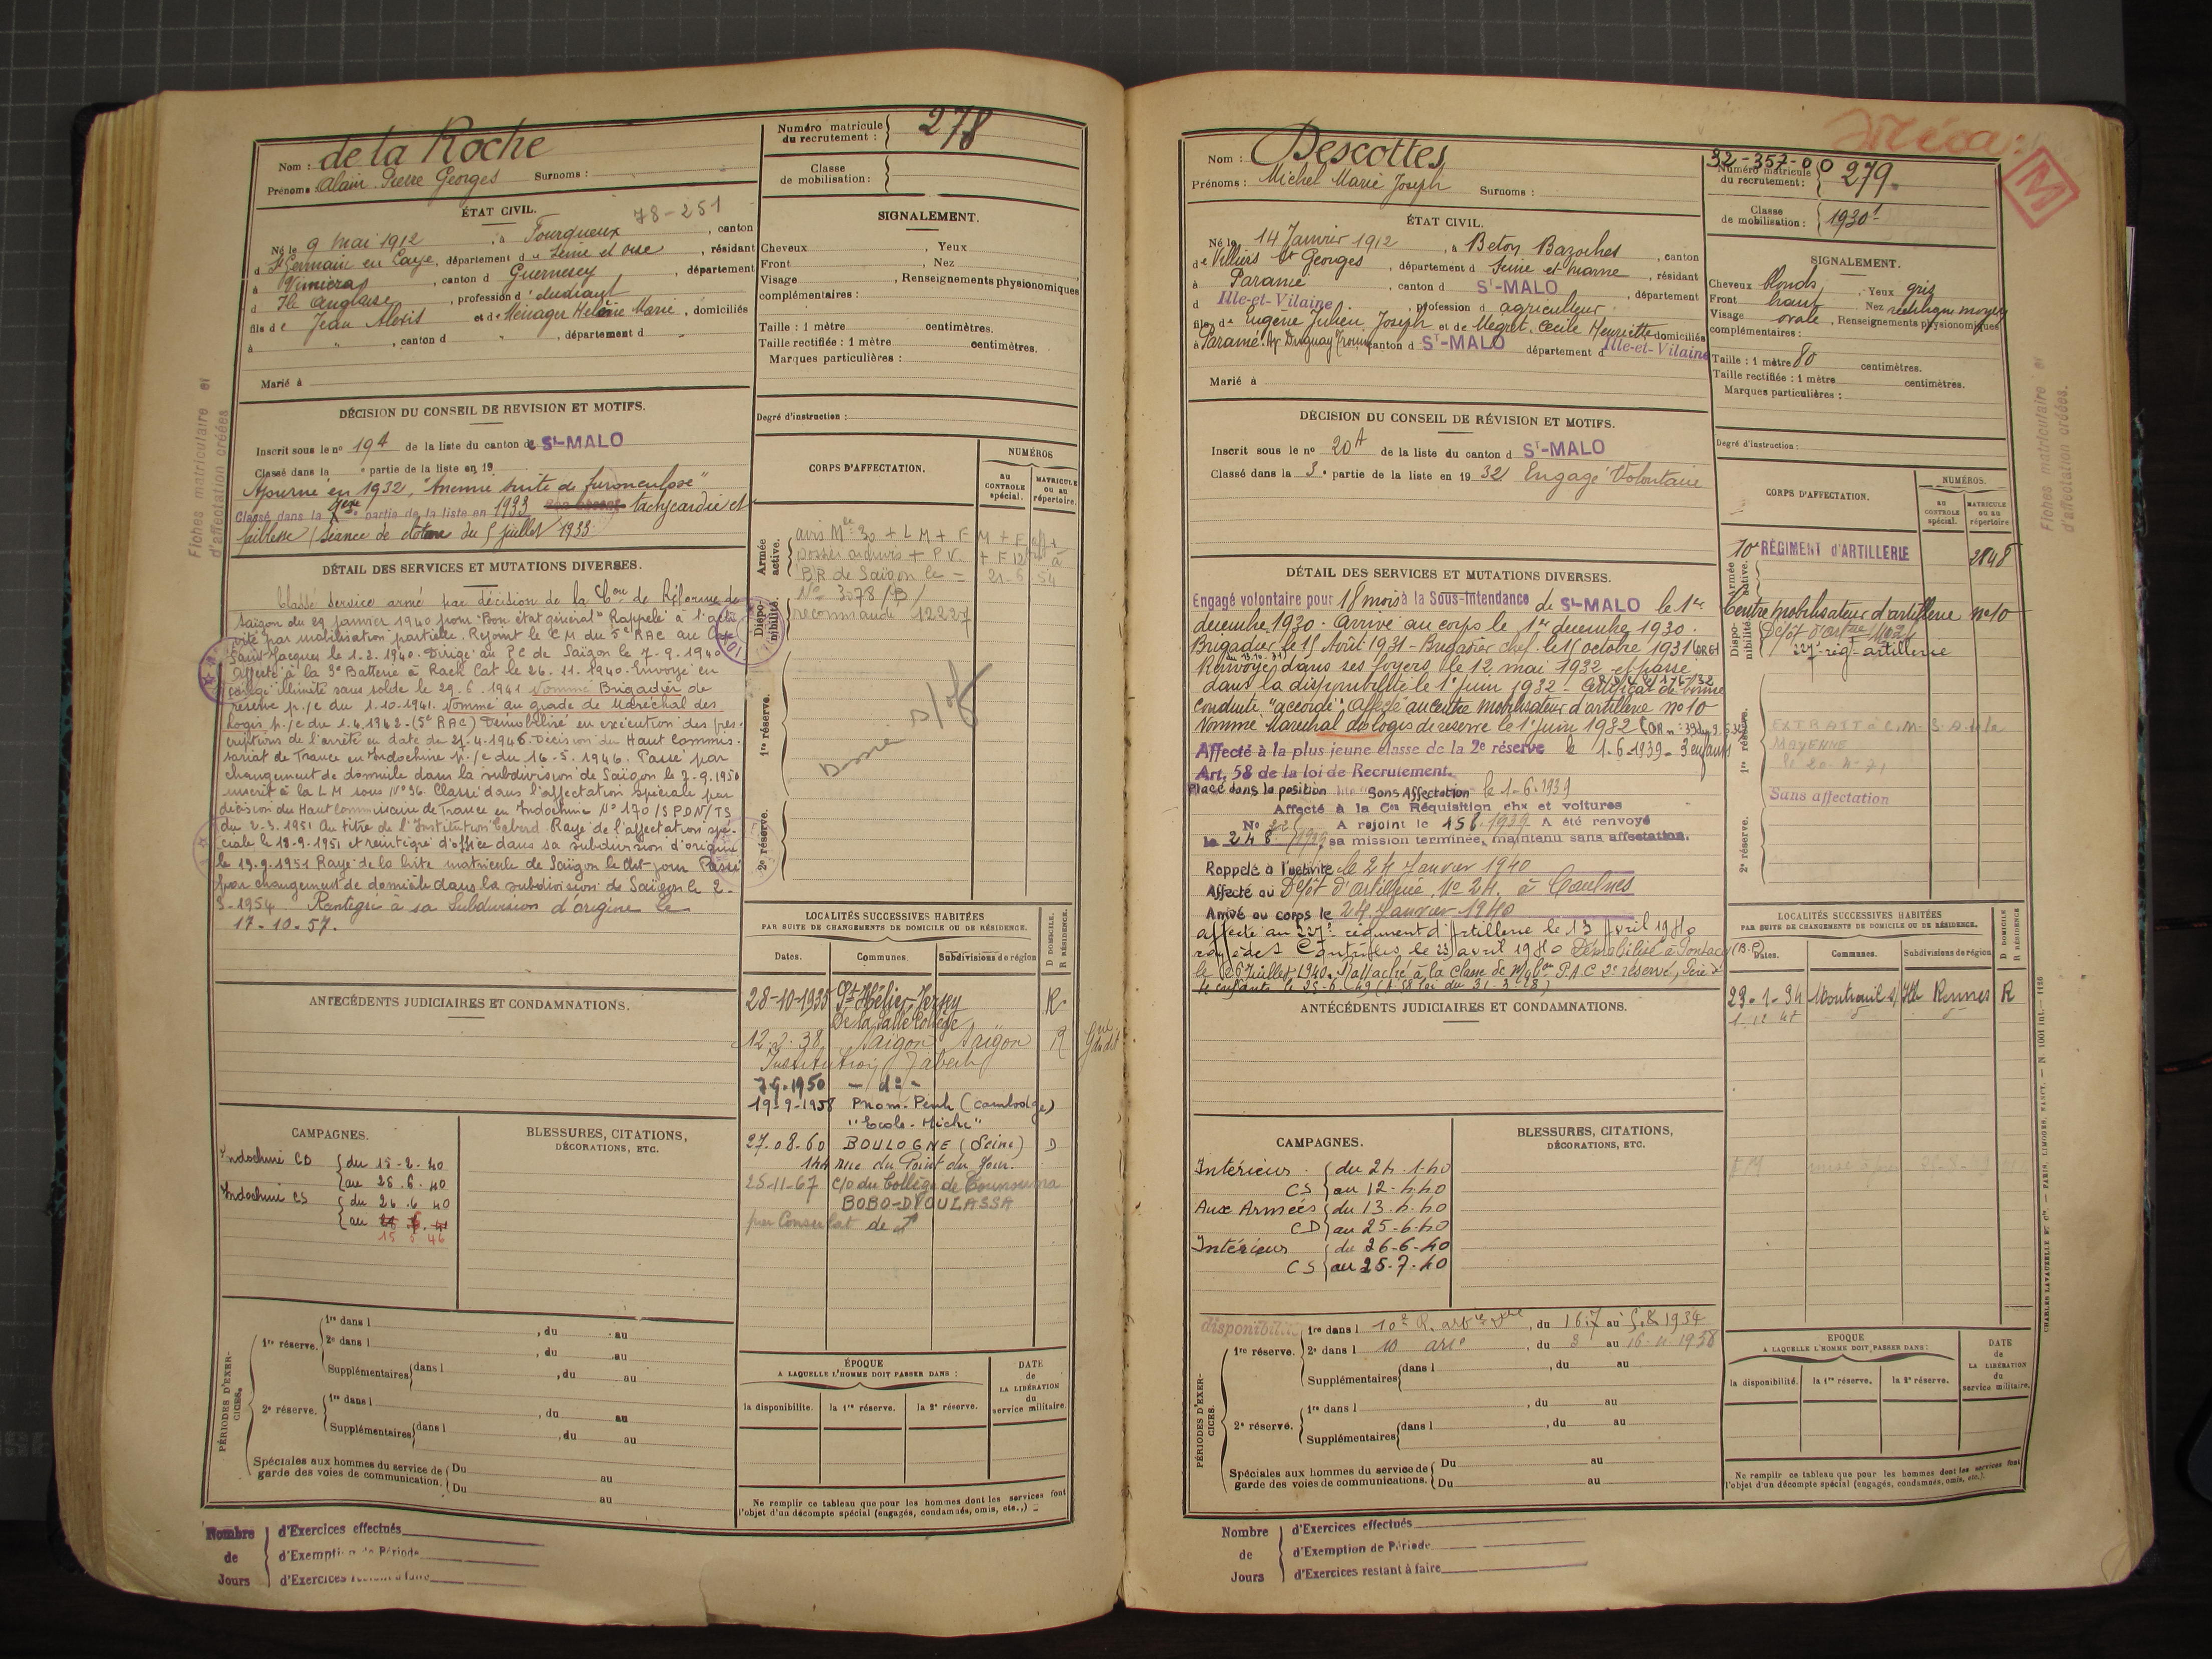 Nom : de la Roche
Prénoms Alain Pierre Georges Surnoms :
Numéro matricule du recrutement : 278
Classe de mobilisation :
ÉTAT CIVIL. 78-251
Né le 9 Mai 1912, à Fourqueux, canton
d St Germain en Laye, département d Seine et Oise, résidant
à Vimiera, canton d Guernesey, département
d Ile Anglaise, profession d' étudiant
fils de Jean Alexis et de Ménager Hélène Marie, domiciliés
à " , canton d " , département d
Marié à
SIGNALEMENT.
Cheveux , Yeux
Front , Nez
Visage , Renseignements physionomiques
complémentaires :
Taille : 1 mètre centimètres.
Taille rectifiée : 1 mètre centimètres.
Marques particulières :
Degré d'instruction :
DÉCISION DU CONSEIL DE REVISION ET MOTIFS.
Inscrit sous le no 19A de la liste du canton de St-MALO
Classé dans la e partie de la liste en 19
Ajourné en 1932, "Anemie suite de furonculose"
Classé dans la partie de la liste en 1933 tachycardie et
faiblesse (Séance de du 5 juillet 1933
DÉTAIL DES SERVICES ET MUTATIONS DIVERSES.
Classé service armé par décision de la Con de Réforme de
Saïgon du 29 janvier 1940 pour "Bon état général" Rappelé à l'acti
vité par mobilisation partielle. Rejoint le CM du 5e RAC au Cap
Saint Jacques le 1.2.1940. Dirigé au PC de Saïgon le 7.9.1940
Affecté à la 3e Batterie à Rach Cat le 26.11.1940. Envoyé en
congé illimité sans solde le 29.6.1941 Nommé Brigadier de
réserve p./c du 1.10.1941. Nommé au grade de Maréchal des
Logis p./c du 1.4.1942.(5e RAC) Démobilisé en exécution des pres-
criptions de l'arrêté en date du 27.4.1946. Décision du Haut Commis-
sariat de France en Indochine p./c du 16.5.1946. Passé par
changement de domicile dans la subdivision de Saïgon le 7.9.1950
inscrit à la LM sous No 96. Classé dans l'affectation spéciale par
décision du Haut Commissaire de France en Indochine No 170/SPDN/TS
du 2-3.1951 Au titre de l'Institution Taberd. Rayé de l'affectation spé-
ciale le 18-9-1951 et réintégré d'office dans sa subdivision d'origine
le 19.9.1951 Rayé de la liste matricule de Saïgon le dit jour Passé
par changement de domicile dans la subdivision de Saïgon le 2-
3-1954 Réintégré à sa Subdivision d'origine le
17-10-57.
CORPS D'AFFECTATION.
NUMÉROS
au CONTROLE spécial.
MATRICULE ou au répertoire.
Armée active.
avis Mle 30 + LM + F M + F
Dossier + P.V. + F
BR de Saïgon le = 21-6 54
No 3.78 /B/
recommandé 12227
Disponibilité.
1re réserve.
2e réserve.
ANTÉCÉDENTS JUDICIAIRES ET CONDAMNATIONS.
LOCALITÉS SUCCESSIVES HABITÉES
PAR SUITE DE CHANGEMENTS DE DOMICILE OU DE RÉSIDENCE.
D DOMICILE. R RÉSIDENCE.
Dates. Communes. Subdivisions de région
28-10-1935 St Hélier-Jersey R
De la Salle Collège
12.2.38 Saïgon Saïgon R
Institution Taberd
7.9.1950 - do -
19-9-1958 Pnom-Penh (Cambodge)
"Ecole-Miche"
27.08.60 BOULOGNE (Seine) D
144 rue du Point du Jour.
25-11-67 c/o du Collège de
BOBO-DIOULASSA
par Consulat de
CAMPAGNES.
Indochine CD { du 15-2-40
{ au 25.6.40
Indochine CS { du 26.6 40
{ au
15 5 46
BLESSURES, CITATIONS,
DÉCORATIONS, ETC.
PÉRIODES D'EXERCICES.
1re réserve. 1re dans l , du au
2e dans l , du au
Supplémentaires dans l , du au
2e réserve. 1re dans l , du au
Supplémentaires dans l , du au
Spéciales aux hommes du service de garde des voies de communication. Du au
Du au
ÉPOQUE
A LAQUELLE L'HOMME DOIT PASSER DANS :
la disponibilité. la 1re réserve. la 2e réserve.
DATE de LA LIBÉRATION du service militaire.
Ne remplir ce tableau que pour les hommes dont les services font
l'objet d'un décompte spécial (engagés, condamnés, omis, etc.,)
Nombre de Jours
d'Exercices effectués
d'Exemption de Période
d'Exercices restant à faire
Fiches matriculaire et
d'affectation créées
Nom : Descottes
Prénoms : Michel Marie Joseph Surnoms :
32-357-00
Numéro matricule du recrutement : 279.
Classe de mobilisation : 1930
M
ÉTAT CIVIL.
Né le 14 Janvier 1912, à Beton Bazoches, canton
de Villiers St Georges, département d Seine et Marne, résidant
à Paramé, canton d St-MALO, département
d Ille-et-Vilaine, profession d agriculteur
fils de Eugène Julien Joseph et de Megret Cécile Henriette domiciliés
à Paramé canton d St-MALO département d Ille-et-Vilaine
Marié à
SIGNALEMENT.
Cheveux blonds, Yeux gris
Front haut Nez rectiligne moyen
Visage ovale, Renseignements physionomiques
complémentaires :
Taille : 1 mètre 80 centimètres.
Taille rectifiée : 1 mètre centimètres.
Marques particulières :
Degré d'instruction :
DÉCISION DU CONSEIL DE RÉVISION ET MOTIFS.
Inscrit sous le no 20A de la liste du canton d St-MALO
Classé dans la 3e partie de la liste en 1932 Engagé Volontaire
DÉTAIL DES SERVICES ET MUTATIONS DIVERSES.
Engagé volontaire pour 18 mois à la Sous-Intendance de St-MALO le 1er
décembre 1930. Arrivé au corps le 1er décembre 1930.
Brigadier le 15 Août 1931 - Brigadier chef le 15 octobre 1931
Renvoyé dans ses foyers le 12 mai 1932 et passé
dans la disponibilité le 1er Juin 1932 - Certificat de bonne
conduite "accordé". Affecté au centre mobilisateur d'artillerie no 10
Nommé Maréchal des logis de réserve le 1er Juin 1932
Affecté à la plus jeune classe de la 2e réserve le 1.6.1939 - 3 enfants
Art. 58 de la loi de Recrutement.
Placé dans la position Sans Affectation le 1-6-1939
Affecté à la Con Réquisition chx et voitures
No 22 A rejoint le 15 8.1939 A été renvoyé
le 24 8.1939 sa mission terminée, maintenu sans affectation.
Rappelé à l'activité le 24 Janvier 1940
Affecté au Dépôt d'Artillerie No 24. à Caulnes
Arrivé au corps le 24 Janvier 1940
affecté au 227e régiment d'Artillerie le 13 Avril 1940
rayé des Contrôles le 23 avril 1940 Démobilisé à Pontacq (B.P)
le 25 Juillet 1940. Rattaché à la Classe de Mobon P.A.C 2e réserve, Père d
4 enfants le 25-6-49 (A 58 loi du 31-3-28)
CORPS D'AFFECTATION.
NUMÉROS.
au CONTROLE spécial.
MATRICULE ou au répertoire
Armée active.
10e RÉGIMENT d'ARTILLERIE 2848
Disponibilité.
Centre mobilisateur d'artillerie no 10
Dépôt d'Artrie
227e rég-artillerie
1re réserve.
EXTRAIT
MAYENNE
Sans affectation
2e réserve.
ANTÉCÉDENTS JUDICIAIRES ET CONDAMNATIONS.
LOCALITÉS SUCCESSIVES HABITÉES
PAR SUITE DE CHANGEMENTS DE DOMICILE OU DE RÉSIDENCE.
D DOMICILE R RÉSIDENCE.
Dates. Communes. Subdivisions de région
23-1-34 Montreuil s/ Ille Rennes R
CAMPAGNES.
Intérieur { du 24.1.40
CS { au 12-4-40
Aux Armées { du 13.4.40
CD { au 25-6-40
Intérieur { du 26-6-40
CS { au 25-7-40
BLESSURES, CITATIONS,
DÉCORATIONS, ETC.
PÉRIODES D'EXERCICES.
disponibilité
1re réserve. 1re dans l 10e R. , du 16.7 au 5.8 1934
2e dans l 10 , du 3 au 16-4-1938
Supplémentaires dans l , du au
2e réserve. 1re dans l , du au
Supplémentaires dans l , du au
Spéciales aux hommes du service de garde des voies de communications. Du au
Du au
EPOQUE
A LAQUELLE L'HOMME DOIT PASSER DANS :
la disponibilité. la 1re réserve. la 2e réserve.
DATE de LA LIBÉRATION du service militaire.
Ne remplir ce tableau que pour les hommes dont les services font
l'objet d'un décompte spécial (engagés, condamnés, omis, etc.).
Nombre de Jours
d'Exercices effectués
d'Exemption de Période
d'Exercices restant à faire
Fiches matriculaire et
d'affectation créées.
CHARLES LAVAUZELLE ET Cie — PARIS, LIMOGES, NANCY. — N 100DI int.— 1126